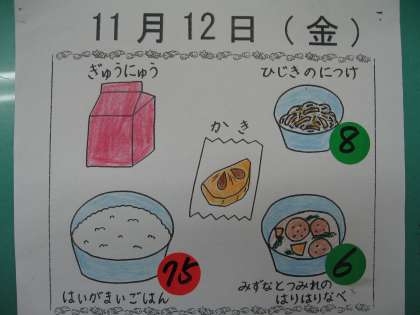 11月12日(金)
ぎゅうにゅう
ひじきのにつけ
かき
8
75
6
はいがまいごはん
みずなとつみれの
はりはりなべ